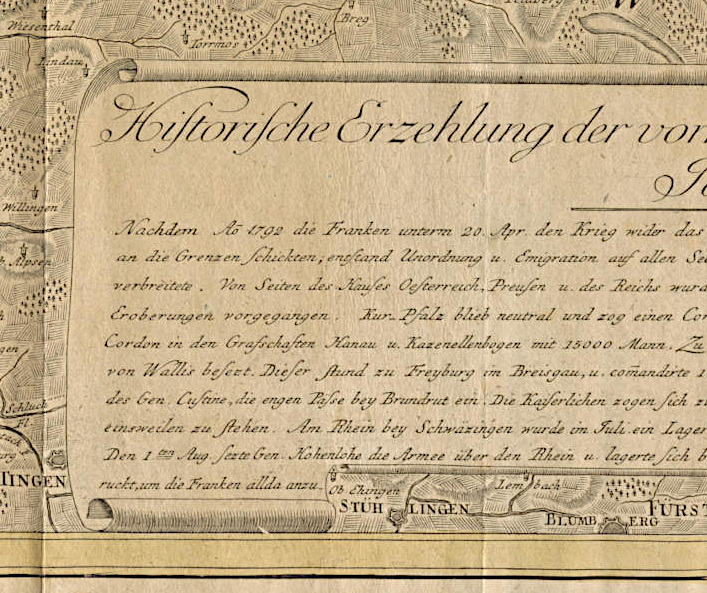 Breg
Wiesenthal
Torrmos
Lindau
Historische Erzehlung der vor
Willingen
Nachdem Aõ 1792 die Franken unterm 20. Apr. den Krieg wider das
an die Grenzen schickten; entstand Unordnung u. Emigration auf allen
verbreitete. Von Seiten des Hauses Oesterreich, Preusen u. des Reichs wurd
Alpsen
Eroberungen vorgegangen. Kur-Pfalz blieb neutral und zog einen Cor
Cordon in den Grafschaften Hanau u. Kazenellenbogen mit 15000 Mann. Zu
gen
von Wallis besezt. Dieser stund zu Freyburg im Breisgau, u. com̃andirte 1
des Gen. Custine, die engen Pässe bey Brundrut ein. Die Kaiserlichen zogen sich z
Schluch
Fl.
einsweilen zu stehen. Am Rhein bey Schwäzingen wurde im Juli ein Lager
Den 1ten Aug. sezte Gen. Hohenlohe die Armee über den Rhein u. lagerte sich b
TINGEN
ruckt, um die Franken allda anzu
Ob Ehingen
Lem bach
STÜH LINGEN
BLUMB ERG
FÜRST